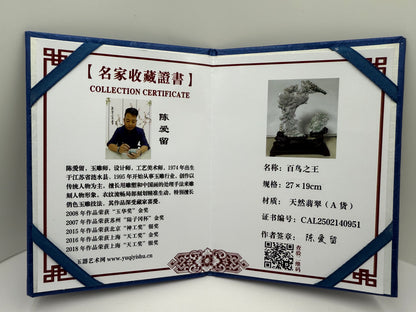 【名家收藏證書】
COLLECTION CERTIFICATE
陈爱留
陈爱留，玉雕师，设计师，工艺美术师，1974年出生
于江苏省涟水县。1995年开始从事玉雕行业，创作以
传统人物为主，擅长用雕塑和中国画的处理手法来雕
刻人物形象，衣纹流畅局部刻划精准生动，特别擅长
俏色玉雕技法，其作品深受藏家喜爱。
2008年作品荣获“玉华奖”金奖
2007年作品荣获苏州“陆子冈杯”金奖
2015年作品荣获北京“神工奖”银奖
2016年作品荣获上海“天工奖”铜奖
2018年作品荣获上海“天工奖”银奖
玉器艺术网 www.yuqiyishu.cn
名称：百鸟之王
规格：27×19cm
材质：天然翡翠（A货）
证书编号：CAL2502140951
作者签章：陈爱留
查验二维码